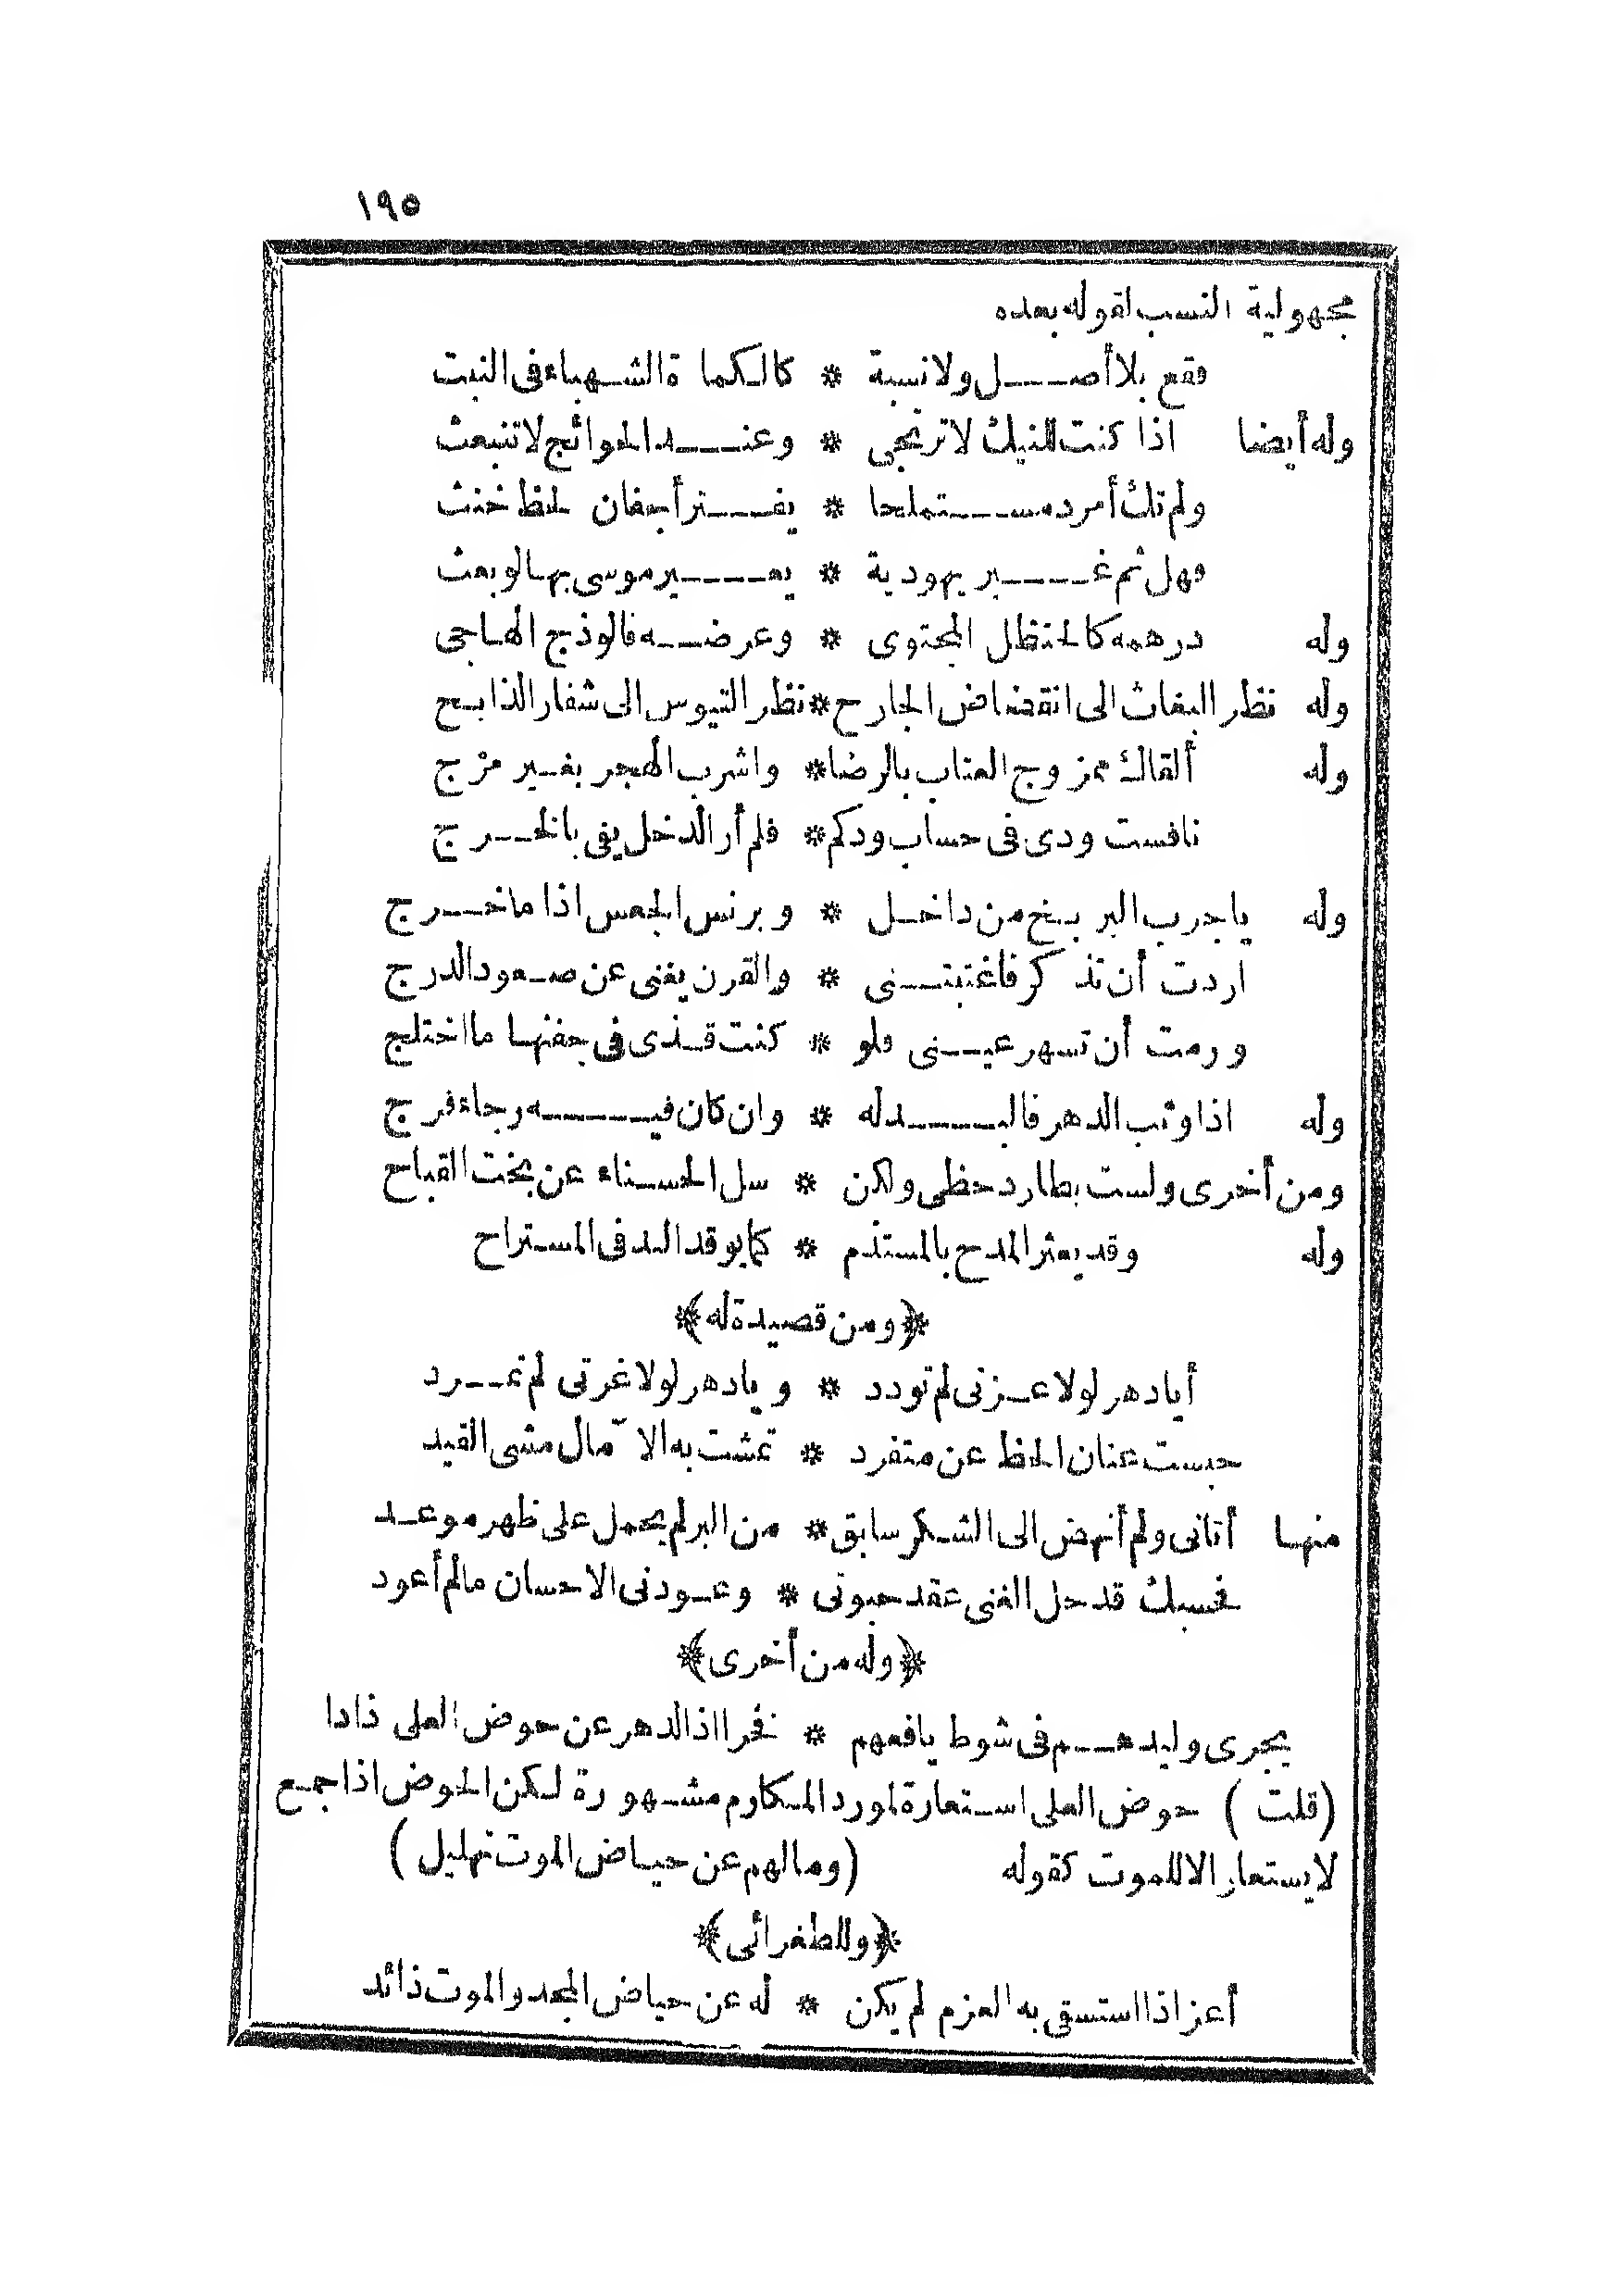 ١٩٥
مجهولية النسب لقوله بعده
فقع بلا أصل ولا نسبة * كالكماة الشهباء فى النبت
وله أيضا اذا كنت للنيك لا ترتجى * وعند الحوائج لا تنبعث
ولم تك أمرد مستملحا * يفتر أجفان لحظ خنث
فهل ثم غير يهودية * يعير موسى بها لو بعث
وله درهمه كالحنظل المجتوى * وعرضه فالوذج الهاجى
وله نظر البغاث الى انقضاض الجارح * نظر التيوس الى شفار الذابح
وله ألقاك ممزوج العتاب بالرضا * واشرب الهجر بغير مزج
نافست ودى فى حساب ودكم * فلم أر الدخل يفى بالخرج
وله يا جرب البربخ من داخل * وبرنس الجعس اذا ما خرج
اردت أن تذكر فاغتبتنى * والقرن يغنى عن صعود الدرج
ورمت أن تسهر عينى فلو * كنت قذى فى جفنها ما اختلج
وله اذا وثب الدهر فالبد له * وان كان فيه رجاء فرج
ومن أخرى ولست بطارد حظى ولكن * سل الحسناء عن بخت القباح
وله وقد يعثر المدح بالمستذم * كما يوقد الند فى المستراح
﴿ومن قصيدة له﴾
أيا دهر لولا عزتى لم تودد * ويا دهر لولا غرتى لم تمرد
حبست عنان الحظ عن متفرد * تمشت به الآمال مشى القيد
منها أتانى ولم أنهض الى الشكر سابق * من البر لم يحمل على ظهر موعد
فحسبك قد حل الغنى عقد حبوتى * وعودنى الاحسان ما لم أعود
﴿وله من أخرى﴾
يجرى وليدهم فى شوط يافعهم * فخرا اذا الدهر عن حوض العلى ذادا
(قلت) حوض العلى استعارة لمورد المكارم مشهورة لكن الحوض اذا جمع
لا يستعار الا للموت كقوله (وما لهم عن حياض الموت تهليل)
﴿وللطغرائى﴾
أعز اذا استسقى به العزم لم يكن * له عن حياض المجد والموت ذائد